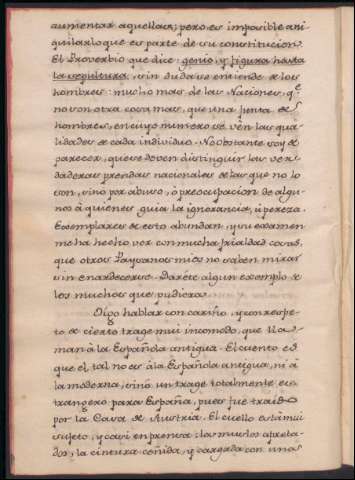 aumentar aquellas; pero es imposible ani-
quilar lo que es parte de su constitucion.
El Proverbio que dice: genio, y figura hasta
la sepultura, sin duda se entiende de los
hombres: mucho mas de las Naciones, qe
no son otra cosa mas, que una junta de
hombres, en cuyo numero se vèn las qua-
lidades de cada individuo. No obstante soy de
parecer, que se deven distinguir las ver-
daderas prendas nacionales de las que no lo
son, sino por abuso, ò preocupacion de algu-
nos à quienes guia la ignorancia, ù pereza.
Exemplares de esto abundan, y su examen
me ha hecho ver con mucha frialdad cosas,
que otros Paysanos mios no saben mirar
sin enardecerse. Darète algun exemplo de
los muchos que pudiera.
Oigo hablar con cariño, y con respe-
to de cierto trage mui incomodo, que lla-
man à la Española antigua. El cuento es
que el tal no es à la Española antigua, ni à
la moderna, sinò un trage totalmente es-
trangero para España, pues fue traido
por la Casa de Austria. El cuello està mui
sujeto, y casi en prensa: los muslos apreta-
dos, la cintura ceñida, y cargada con una